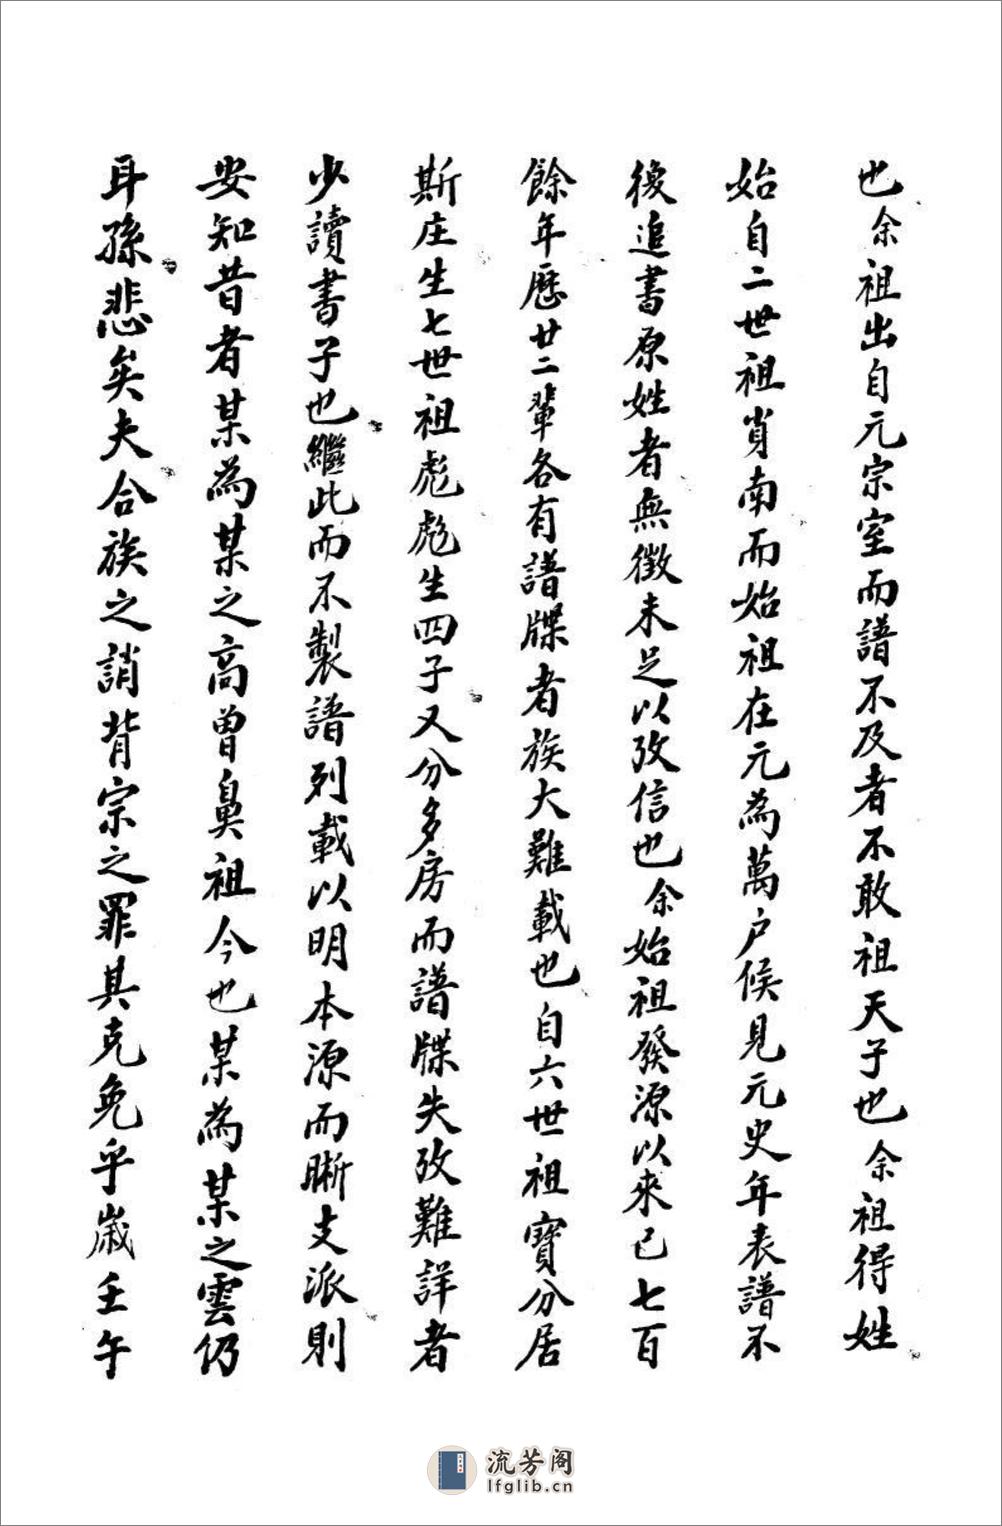 也余祖出自元宗室而譜不及者不敢祖天子也余祖得姓
始自二世祖肖南而始祖在元為萬户候見元史年表譜不
復追書原姓者無徵未足以攷信也余始祖發源以來已七百
餘年歷廿二輩各有譜牒者族大難載也自六世祖寶分居
斯庄生七世祖彪彪生四子又分多房而譜牒失攷難詳者
少讀書子也繼此而不製譜列載以明本源而晰支派則
安知昔者某為某之高曾鼻祖今也某為某之雲仍
耳孫悲矣夫合族之誚背宗之罪其克免乎歲壬午
流芳阁
lfglib.cn